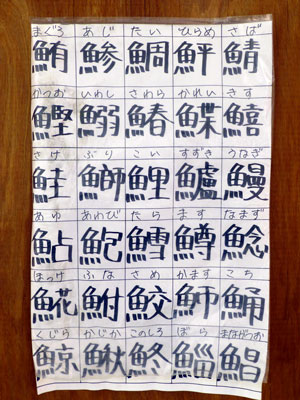 まぐろ あじ たい ひらめ さば
鮪 鯵 鯛 鮃 鯖
かつお いわし さわら かれい きす
鰹 鰯 鰆 鰈 鱚
さけ ぶり こい すずき うなぎ
鮭 鰤 鯉 鱸 鰻
あゆ あわび たら ます なまず
鮎 鮑 鱈 鱒 鯰
ほっけ ふな さめ かます こち
𩸽 鮒 鮫 魳 鯒
くじら かじか このしろ ぼら まながつお
鯨 鰍 鮗 鯔 鯧